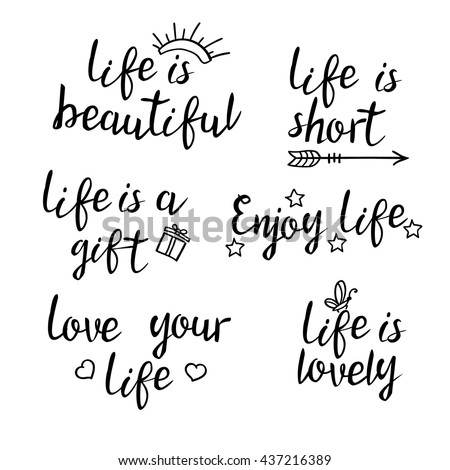 life is
beautiful
life is
short
life is a
gift
Enjoy life
love your
life
life is
lovely
shutterstock
www.shutterstock.com · 437216389